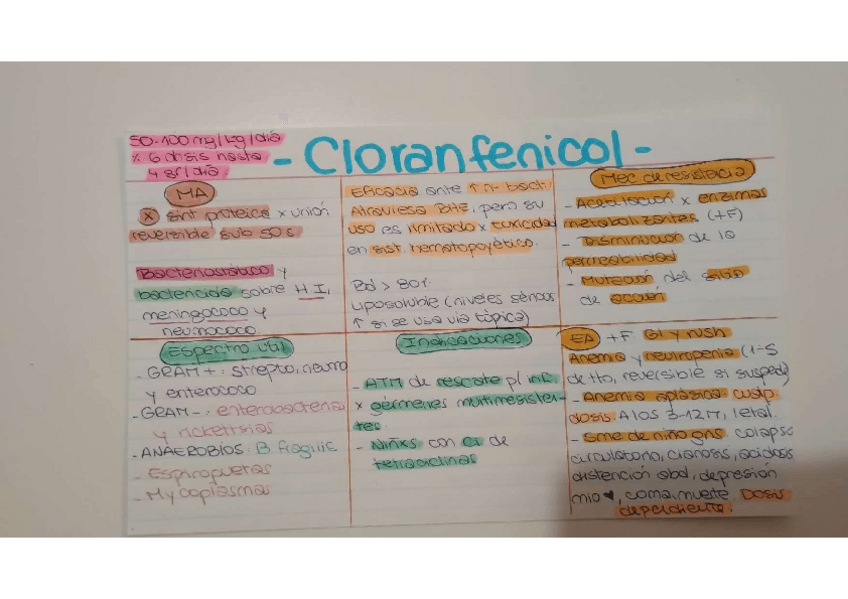 50-100 mg/kg/día
% 6 dosis hasta
4 gr/día
- Cloranfenicol -
MA
⊗ sint proteica x unión
reversible sub 50 s
Bacteriostático y
bactericida sobre H.I,
meningococo y
neumococo
Eficacia ante ↑ n° bact.
Atraviesa BHE, pero su
uso es limitado x toxicidad
en sist. hematopoyético.
Bd > 80%
Liposoluble (niveles séricos
↑ si se usa vía tópica)
Mec de resistencia
- Acetilación x enzimas
metabolizantes (+F)
- Disminución de la
permeabilidad
- Mutación del sitio
de acción
Espectro útil
- GRAM + : strepto, neumo
y enterococo
- GRAM - : enterobacterias
y rickettsias
- ANAEROBIOS: B. fragilis
- Espiroquetas
- Mycoplasmas
Indicaciones
- ATM de rescate p/ inf
x gérmenes multirresisten-
tes.
- Niñxs con CI de
tetraciclinas
EA +F: GI y rush
Anemia y neutropenia (1-5
de tto, reversible si suspede)
- Anemia aplásica: cualq
dosis. A los 3-12M, letal.
- Sme de niño gris: colapso
circulatorio, cianosis, acidosis
distención abd, depresión
mio ♥, coma, muerte. Dosis
dependiente.